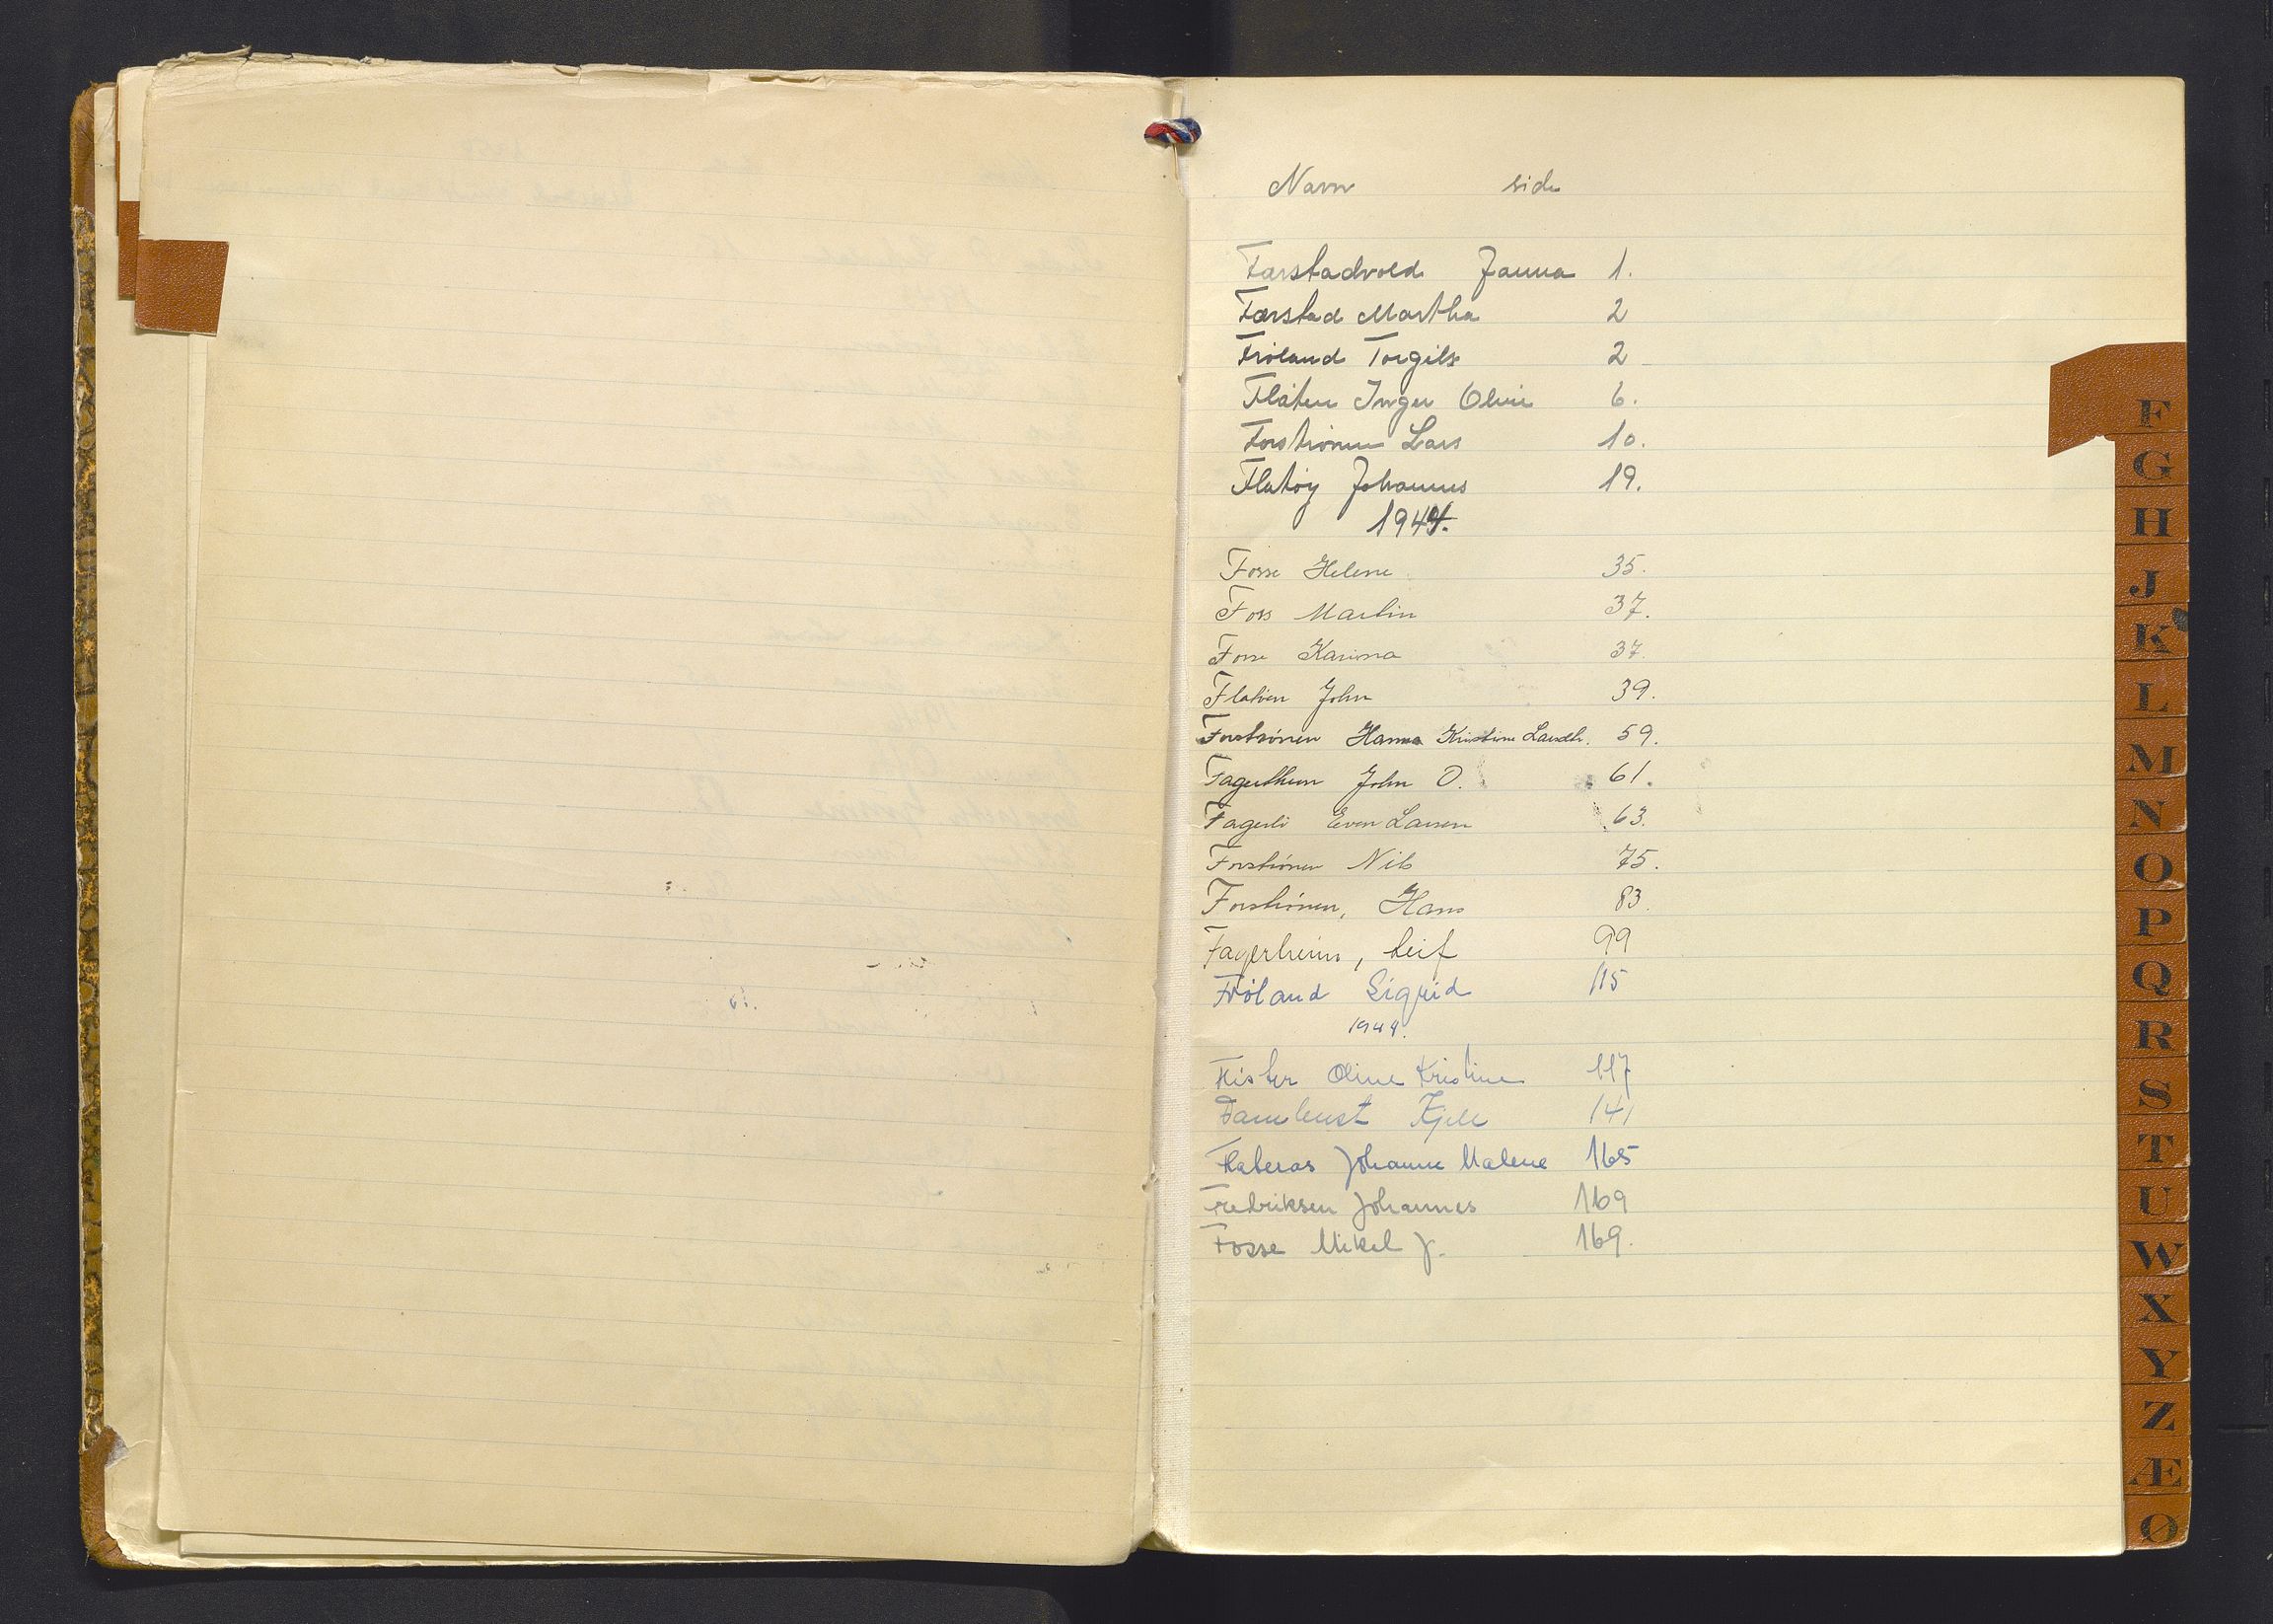 Navn side
Farstadvold Janna 1.
Farstad Martha 2
Fröland Torgils 2
Flåten Inger Oline 6.
Forströnen Lars 10.
Flatöy Johannes 19.
1944.
Fosse Helene 35.
Foss Martin 37.
Fosse Karina 37.
Flatöen John 39.
Forströnen Hanna Kristine Larsdtr. 59.
Fagertheim John O. 61.
Fagerli Even Larsen 63.
Forströnen Nils 75.
Forströnen, Hans 83.
Fagerheim, Leif 99
Fröland Sigrid 115
1944.
Fister Oline Kristine 117
Farnbust Kjell 141
Flaterås Johanne Malene 165
Fredriksen Johannes 169
Fosse Mikal J. 169.
F
G
H
J
K
L
M
N
O
P
Q
R
S
T
U
W
X
Y
Z
Æ
Ø